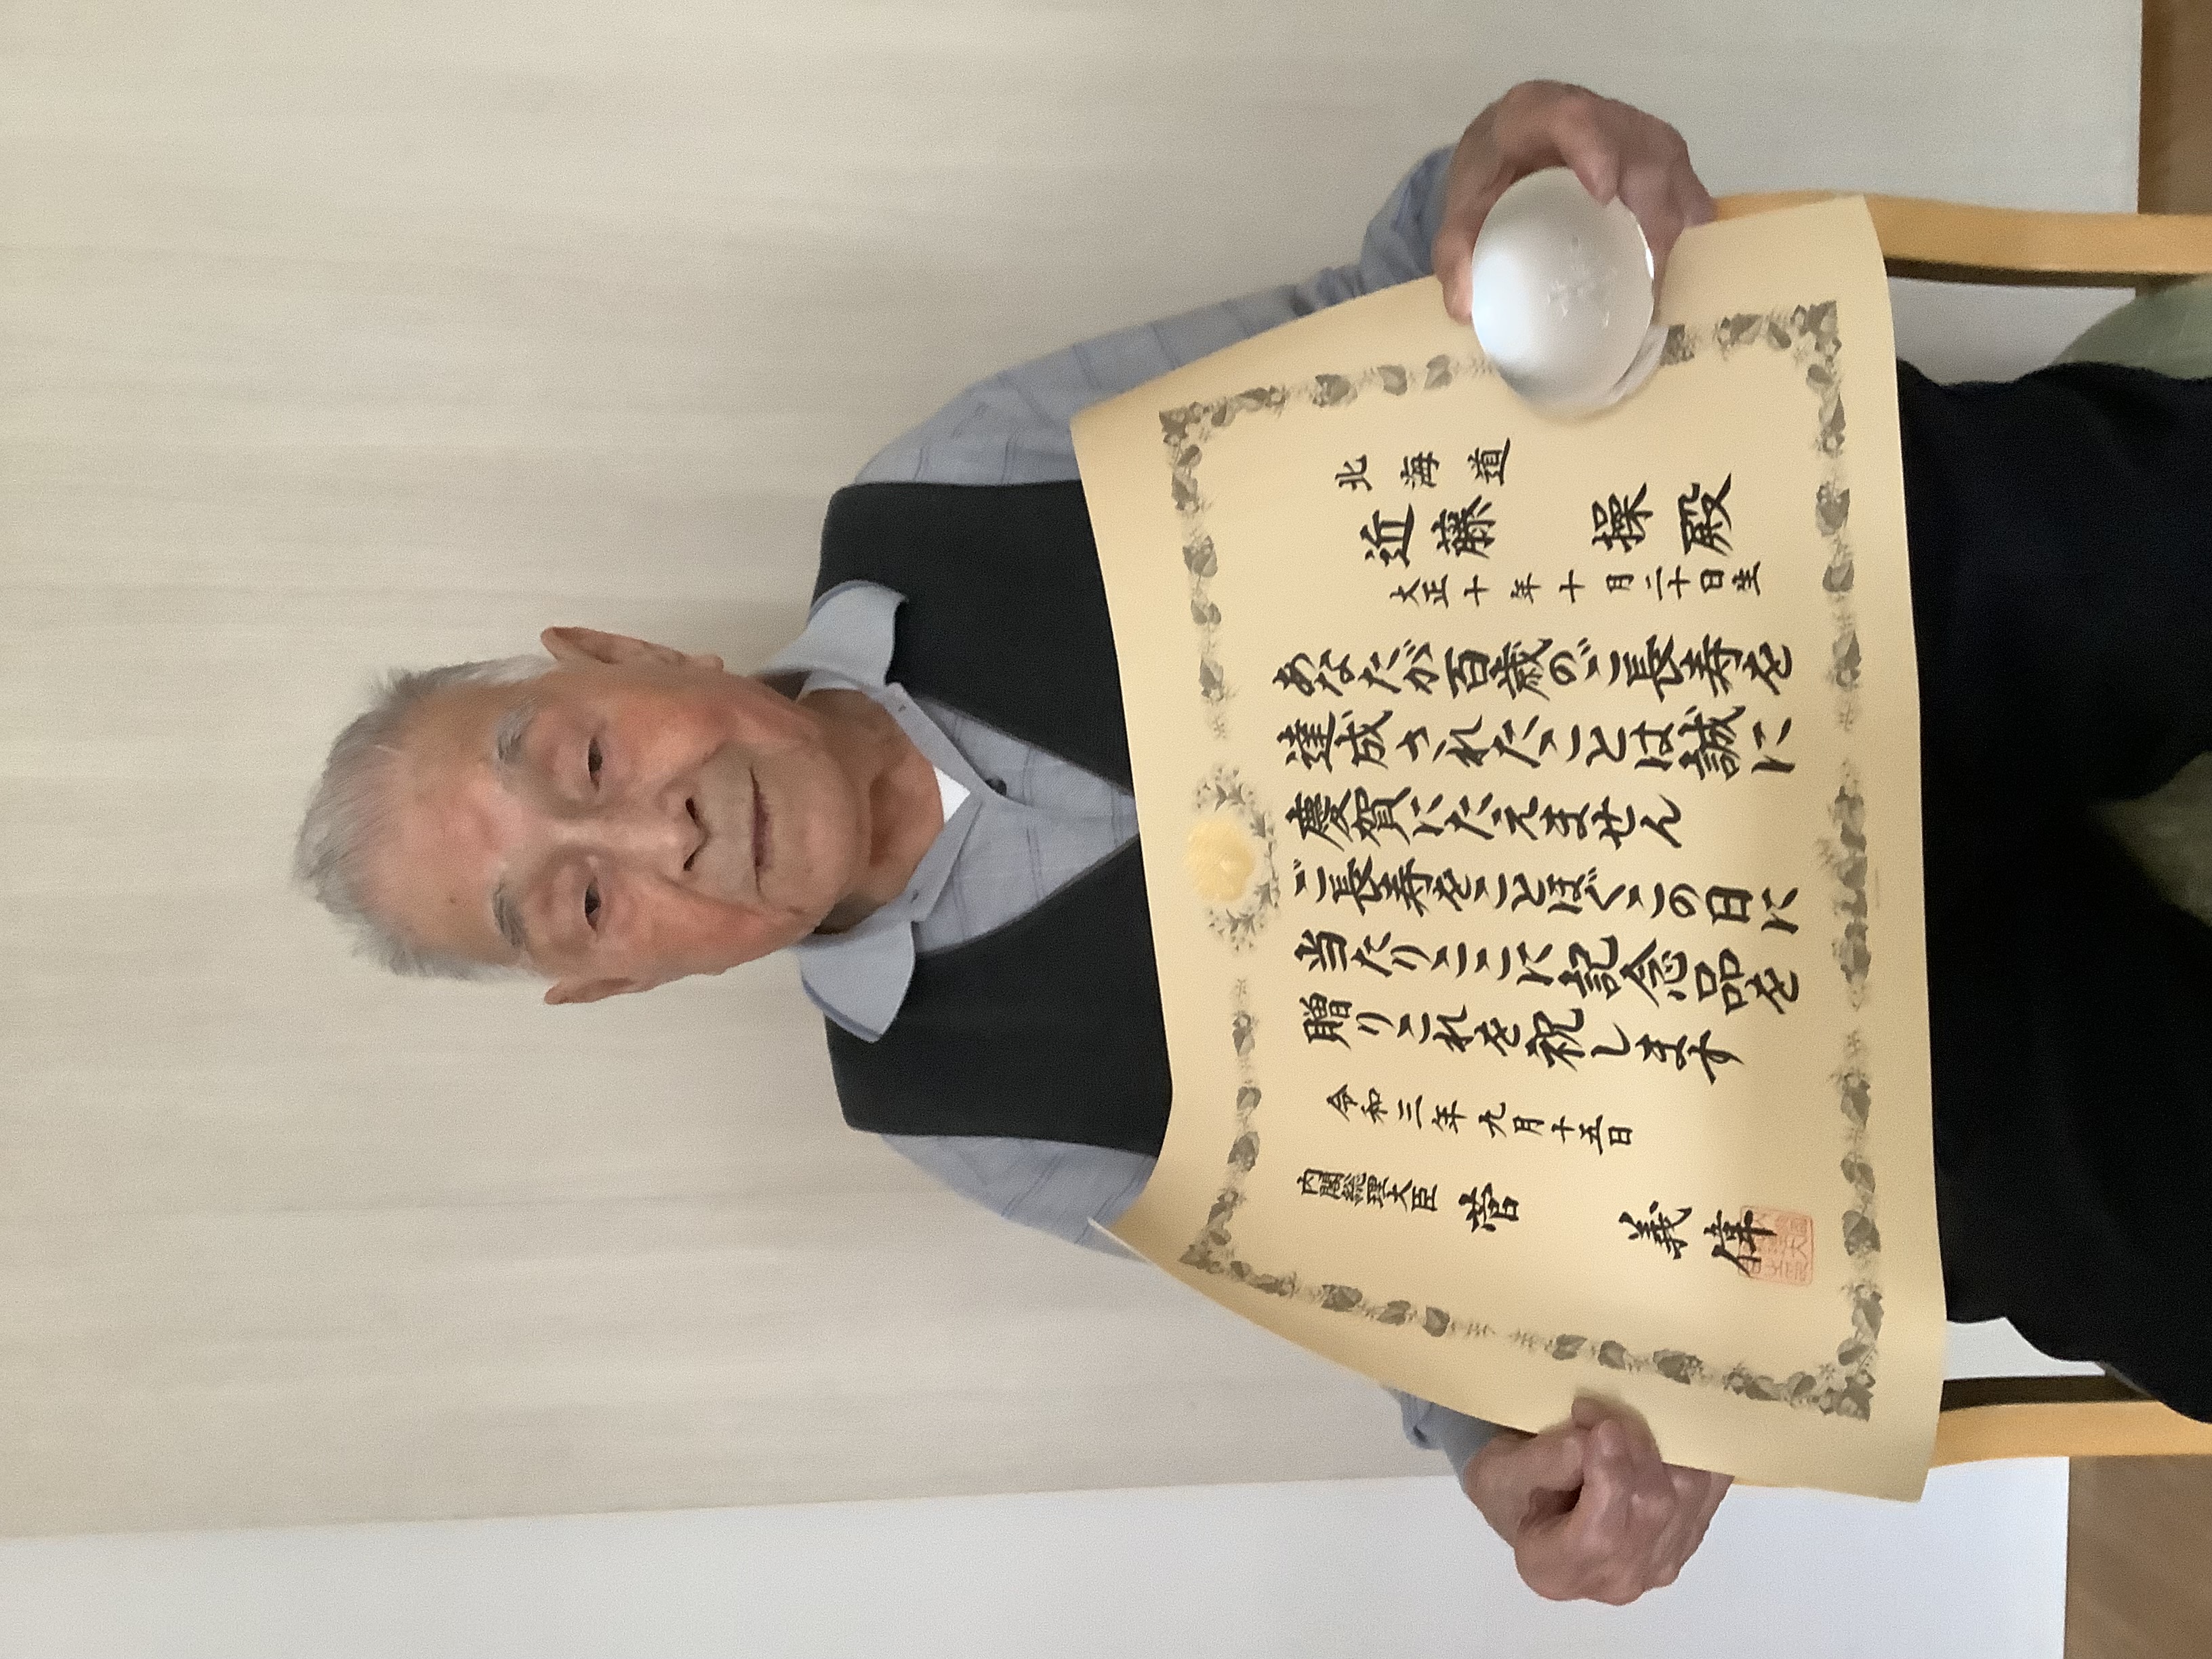 北海道
近藤 操殿
大正十年十月二十日生
あなたが百歳のご長寿を
達成されたことは誠に
慶賀にたえません
ご長寿をことほぐこの日に
当たりここに記念品を
贈りこれを祝します
令和三年九月十五日
内閣総理大臣 菅 義偉